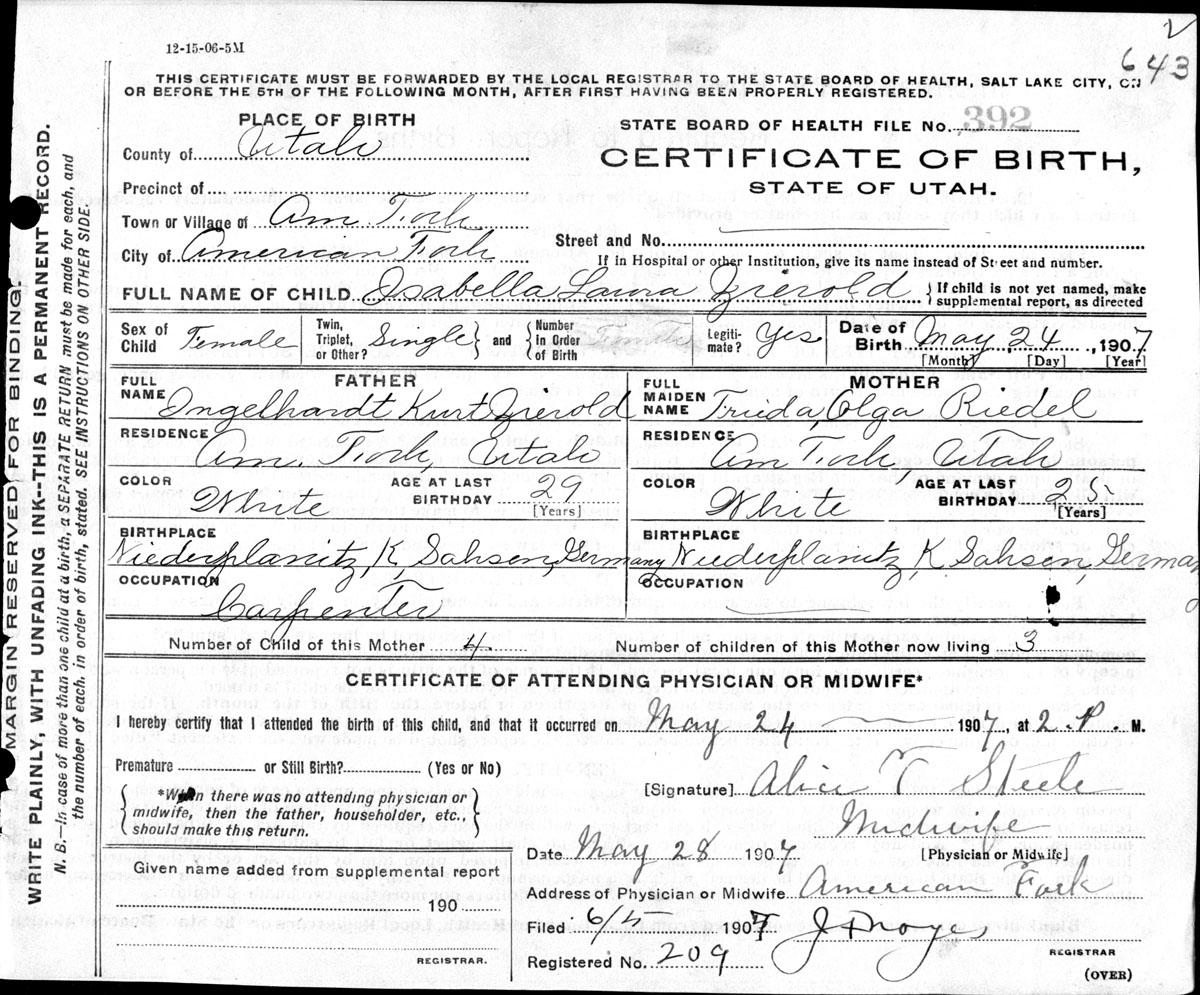 2
643
12-15-06-5M
THIS CERTIFICATE MUST BE FORWARDED BY THE LOCAL REGISTRAR TO THE STATE BOARD OF HEALTH, SALT LAKE CITY, ON
OR BEFORE THE 5TH OF THE FOLLOWING MONTH, AFTER FIRST HAVING BEEN PROPERLY REGISTERED.
PLACE OF BIRTH
County of Utah
Precinct of
Town or Village of Am. Fork
City of American Fork
STATE BOARD OF HEALTH FILE No. 392
CERTIFICATE OF BIRTH,
STATE OF UTAH.
Street and No.
If in Hospital or other Institution, give its name instead of Street and number.
FULL NAME OF CHILD Isabella Laura Zierold { If child is not yet named, make supplemental report, as directed
Sex of Child Female Twin, Triplet, or Other? Single } and { Number In Order of Birth Legiti-mate? Yes Date of Birth May 24, 1907
[Month] [Day] [Year]
FATHER
FULL NAME Ingelhardt Kurt Zierold
RESIDENCE Am. Fork, Utah
COLOR White AGE AT LAST BIRTHDAY 29 [Years]
BIRTHPLACE Niederplanitz, K, Sahsen, Germany
OCCUPATION Carpenter
MOTHER
FULL MAIDEN NAME Frieda, Olga Riedel
RESIDENCE Am Fork, Utah
COLOR White AGE AT LAST BIRTHDAY 25 [Years]
BIRTHPLACE Niederplanitz, K, Sahsen, Germany
OCCUPATION
Number of Child of this Mother 4. Number of children of this Mother now living 3
CERTIFICATE OF ATTENDING PHYSICIAN OR MIDWIFE*
I hereby certify that I attended the birth of this child, and that it occurred on May 24 1907, at 2. P. M.
Premature or Still Birth? (Yes or No)
*When there was no attending physician or
midwife, then the father, householder, etc.,
should make this return.
[Signature] Alice T Steele
Midwife
[Physician or Midwife]
Date May 28 1907
Address of Physician or Midwife American Fork
Given name added from supplemental report
190
REGISTRAR.
Filed 6/5 1907
Registered No. 209
REGISTRAR
(OVER)
MARGIN RESERVED FOR BINDING.
WRITE PLAINLY, WITH UNFADING INK--THIS IS A PERMANENT RECORD.
N. B.—In case of more than one child at a birth, a SEPARATE RETURN must be made for each, and
the number of each, in order of birth, stated. SEE INSTRUCTIONS ON OTHER SIDE.